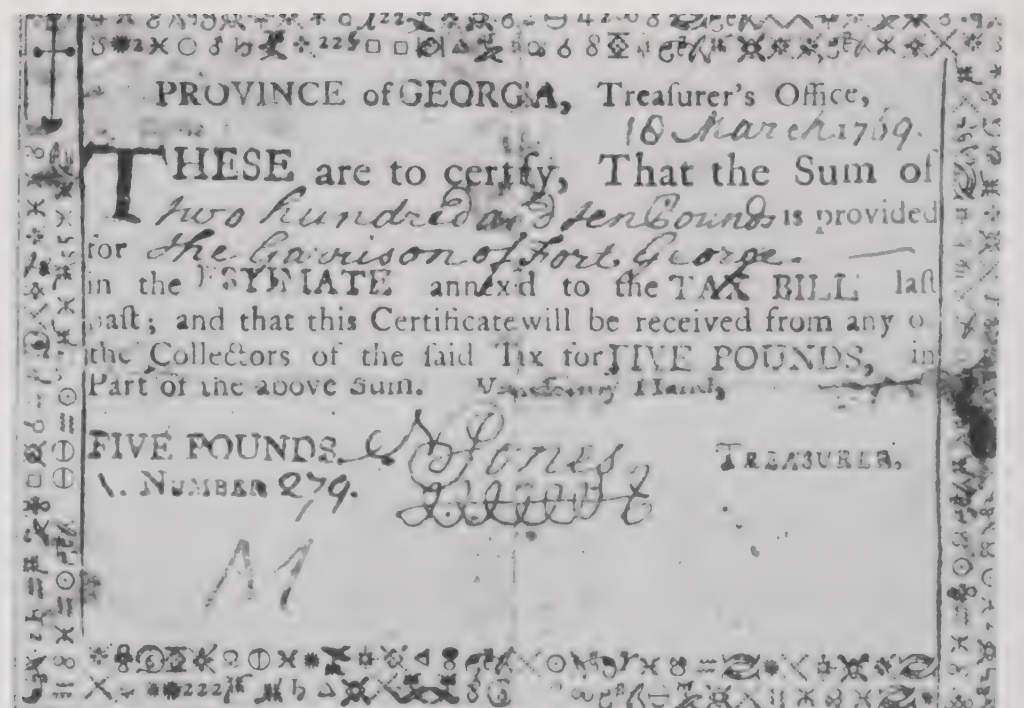 PROVINCE of GEORGIA, Treaſurer's Office,
18 March 1769.
THESE are to certify, That the Sum of
two hundred and ten Pounds is provided
for the Garrison of Fort George.
in the ESTIMATE annex'd to the TAX BILL laſt
paſt; and that this Certificate will be received from any of
the Collectors of the ſaid Tax for FIVE POUNDS, in
Part of the above Sum. Hand,
FIVE POUNDS. N Jones, TREASURER.
NUMBER 279.
M